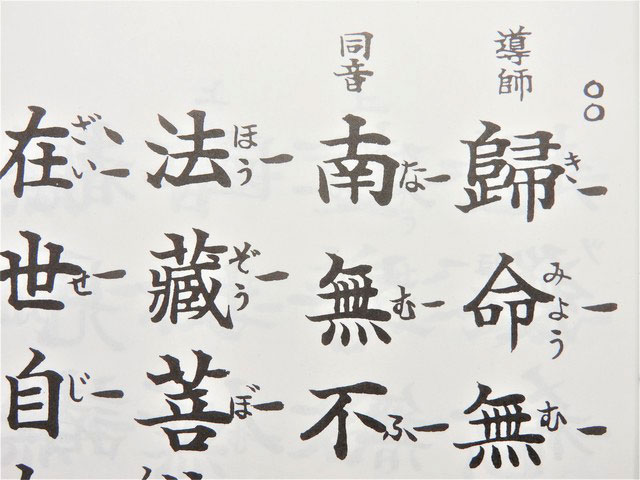 ○○
導師
歸命無
きみようむ
同音
南無不
なむふ
法藏菩
ほうぞうぼ
在世自
ざいせじ